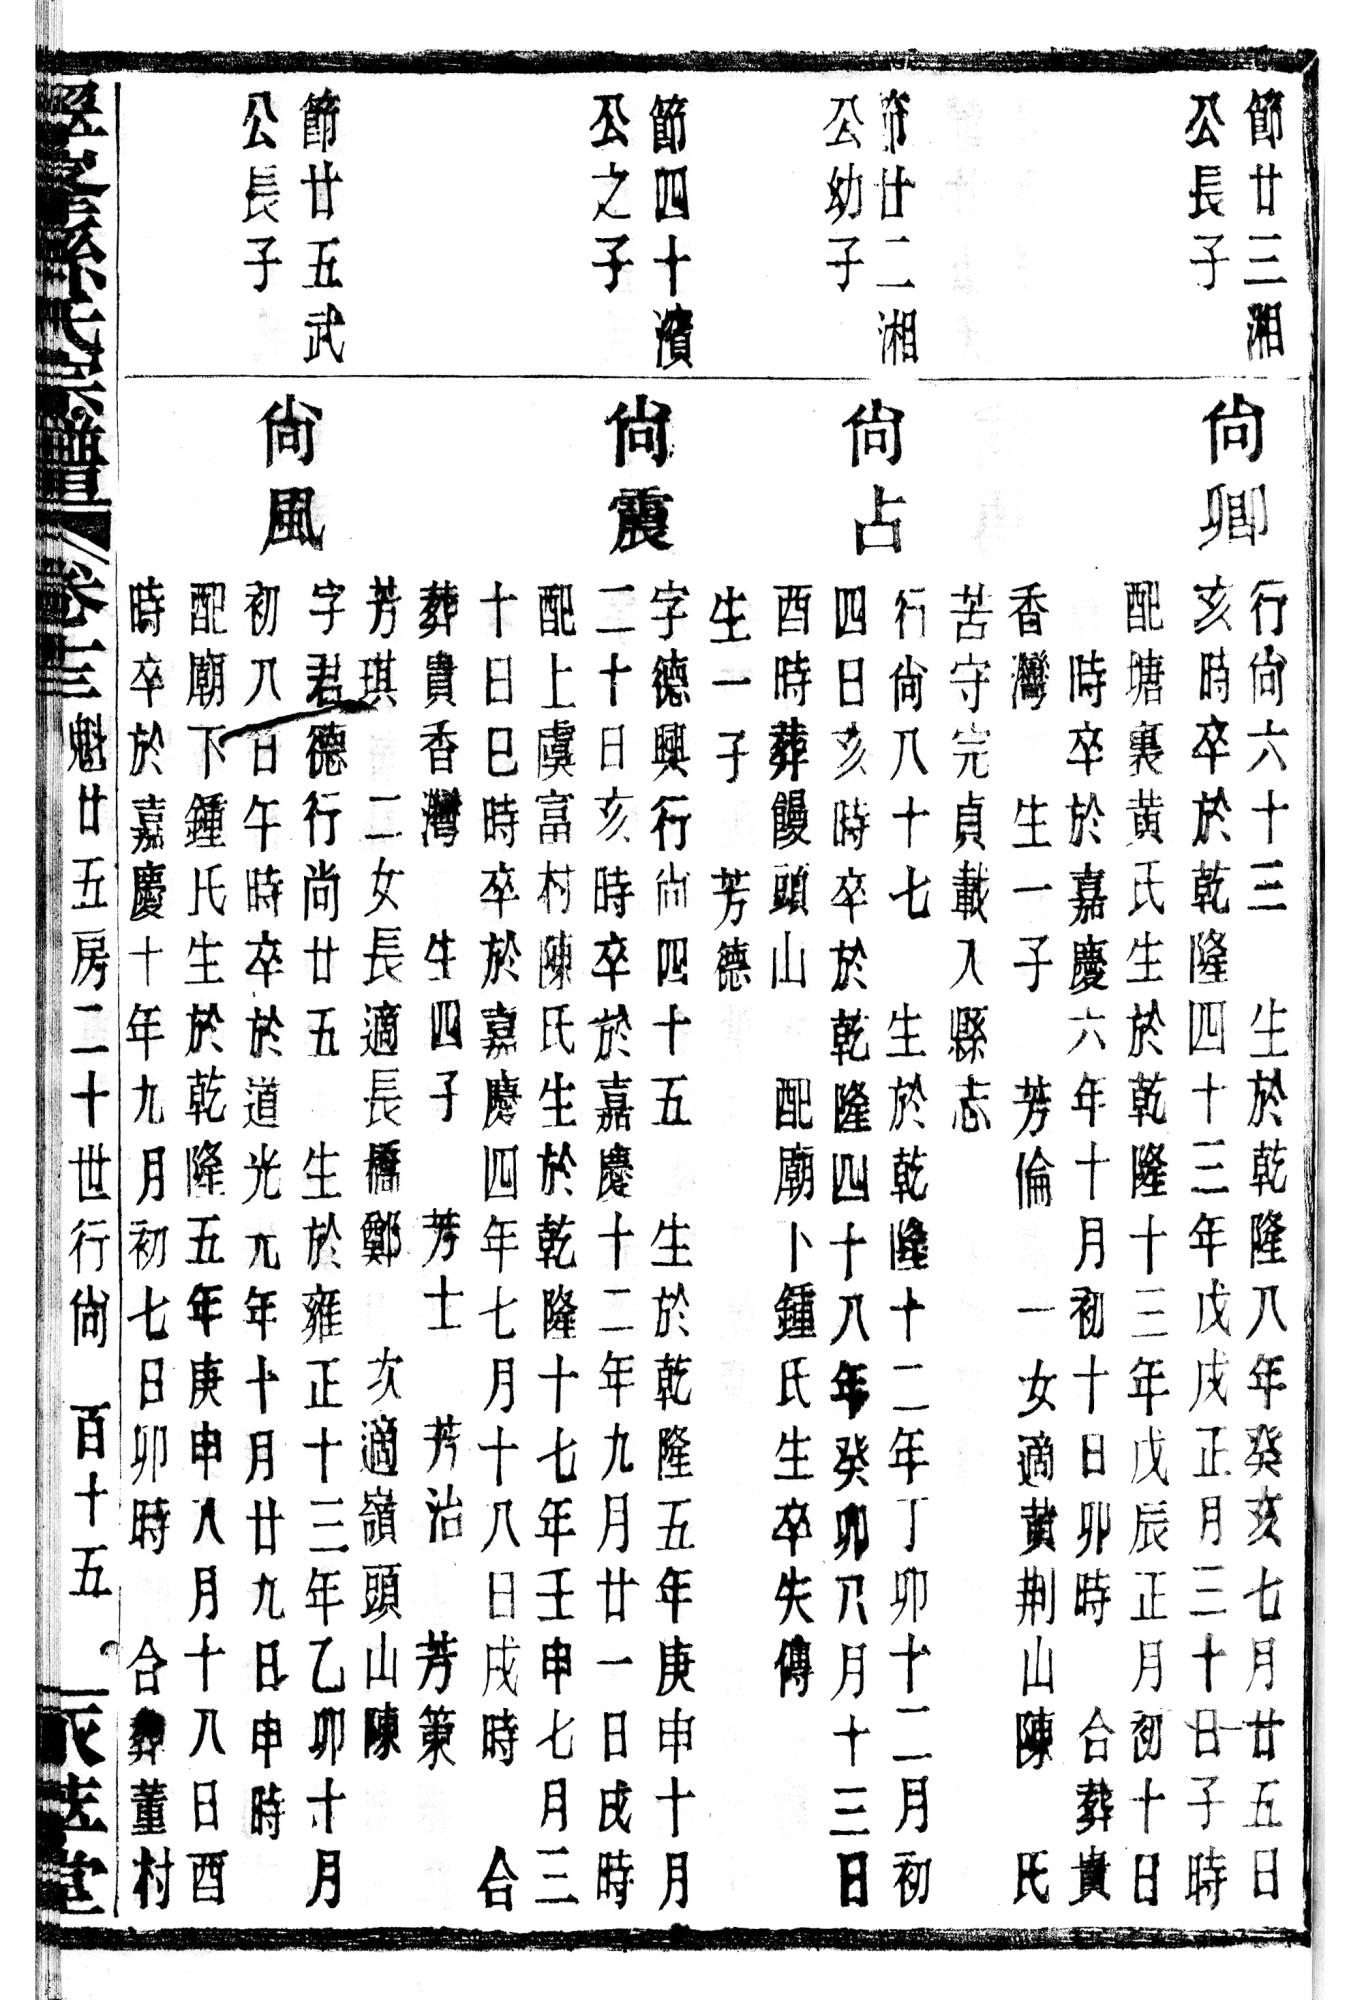 節廿三湘
公長子
尙卿
行尙六十三　生於乾隆八年癸亥七月廿五日
亥時卒於乾隆四十三年戊戌正月三十日子時
配塘裏黃氏生於乾隆十三年戊辰正月初十日
時卒於嘉慶六年十月初十日卯時　合葬貴
香灣　生一子　芳倫　一女適黃荆山陳　氏
苦守完貞載入縣志
節廿二湘
公幼子
尙占
行尙八十七　生於乾隆十二年丁卯十二月初
四日亥時卒於乾隆四十八年癸卯八月十三日
酉時葬饅頭山　配廟卜鍾氏生卒失傳
生一子　芳德
節四十濱
公之子
尙震
字德興行尙四十五　生於乾隆五年庚申十月
二十日亥時卒於嘉慶十二年九月廿一日戌時
配上虞富村陳氏生於乾隆十七年壬申七月三
十日巳時卒於嘉慶四年七月十八日戌時　合
葬貴香灣　生四子　芳士　芳治　芳策
芳琪　二女長適長橋鄭　次適嶺頭山陳
節廿五武
公長子
尙風
字君德行尚廿五　生於雍正十三年乙卯十月
初八日午時卒於道光元年十月廿九日申時
配廟下鍾氏生於乾隆五年庚申八月十八日酉
時卒於嘉慶十年九月初七日卯時　合葬董村
孫氏宗譜　卷十三　魁廿五房二十世行尙　百十五　堂